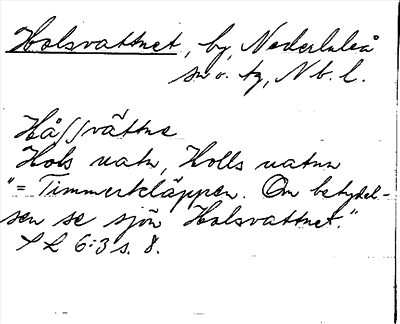 Holsvattnet, by, Nederluleå
sn o. tg, Nb. l.
Hå//vättne
Hols vatn, Holls vatnn
"= Timmerkläppen. Om betydel-
sen se sjön Holsvattnet."
S L 6:3 s. 8.